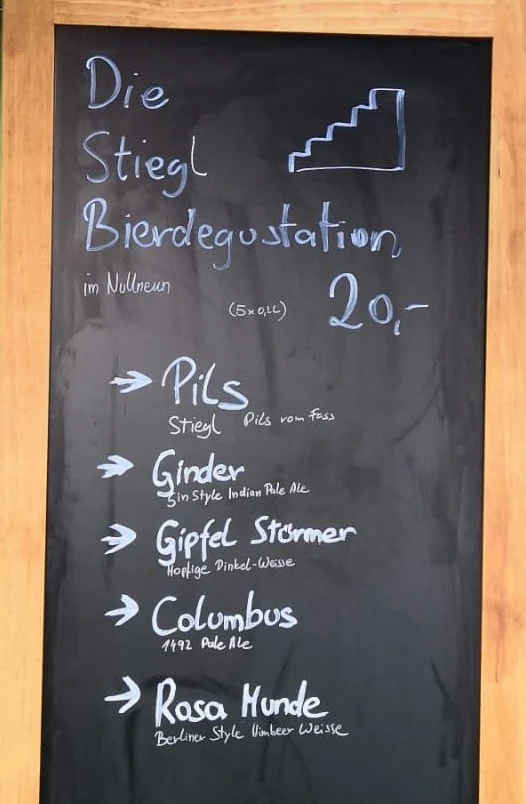 Die
Stiegl
Bierdegustation
im Nullneun
(5x0,2L) 20,-
→ Pils
Stiegl Pils vom Fass
→ Ginder
Gin Style Indian Pale Ale
→ Gipfel Stürmer
Hopfige Dinkel-Weisse
→ Columbus
1492 Pale Ale
→ Rosa Munde
Berliner Style Himbeer Weisse